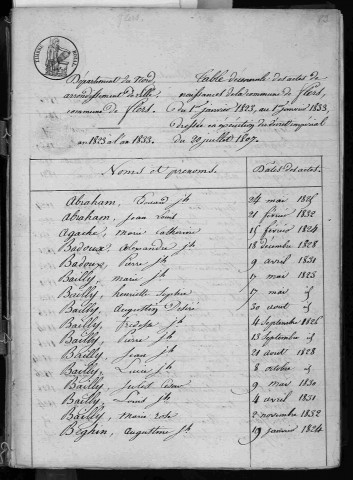 Flers
Département du Nord
arrondissement de Lille
commune de Flers.
an 1823 à l'an 1833.
Table décennale des actes de
naissances de la commune de Flers,
du 1er janvier 1823, au 1er janvier 1833,
dressée en exécution du décret impérial
du 20 juillet 1807.
Noms et prénoms. Dates des actes.
Abraham, Edouard jh 24 mai 1825
Abraham, Jean Louis 21 février 1832
Agache, marie catherine 15 février 1824
Badoux, alexandre jh 18 décembre 1828
Badoux, Pierre jh 9 avril 1831
Bailly, marie jh 17 mai 1825
Bailly, henriette Sophie 17 mai id
Bailly, augustin Désiré 30 août id
Bailly, jh 4 Septembre 1826
Bailly, Pierre jh 13 Septembre id
Bailly, Jean jh 21 août 1828
Bailly, Louis jh 8 octobre id
Bailly, Jules César 9 mai 1830
Bailly, Louis jh 4 avril 1831
Bailly, marie rose 2 novembre 1832
Béghin, augustine jh 19 janvier 1824